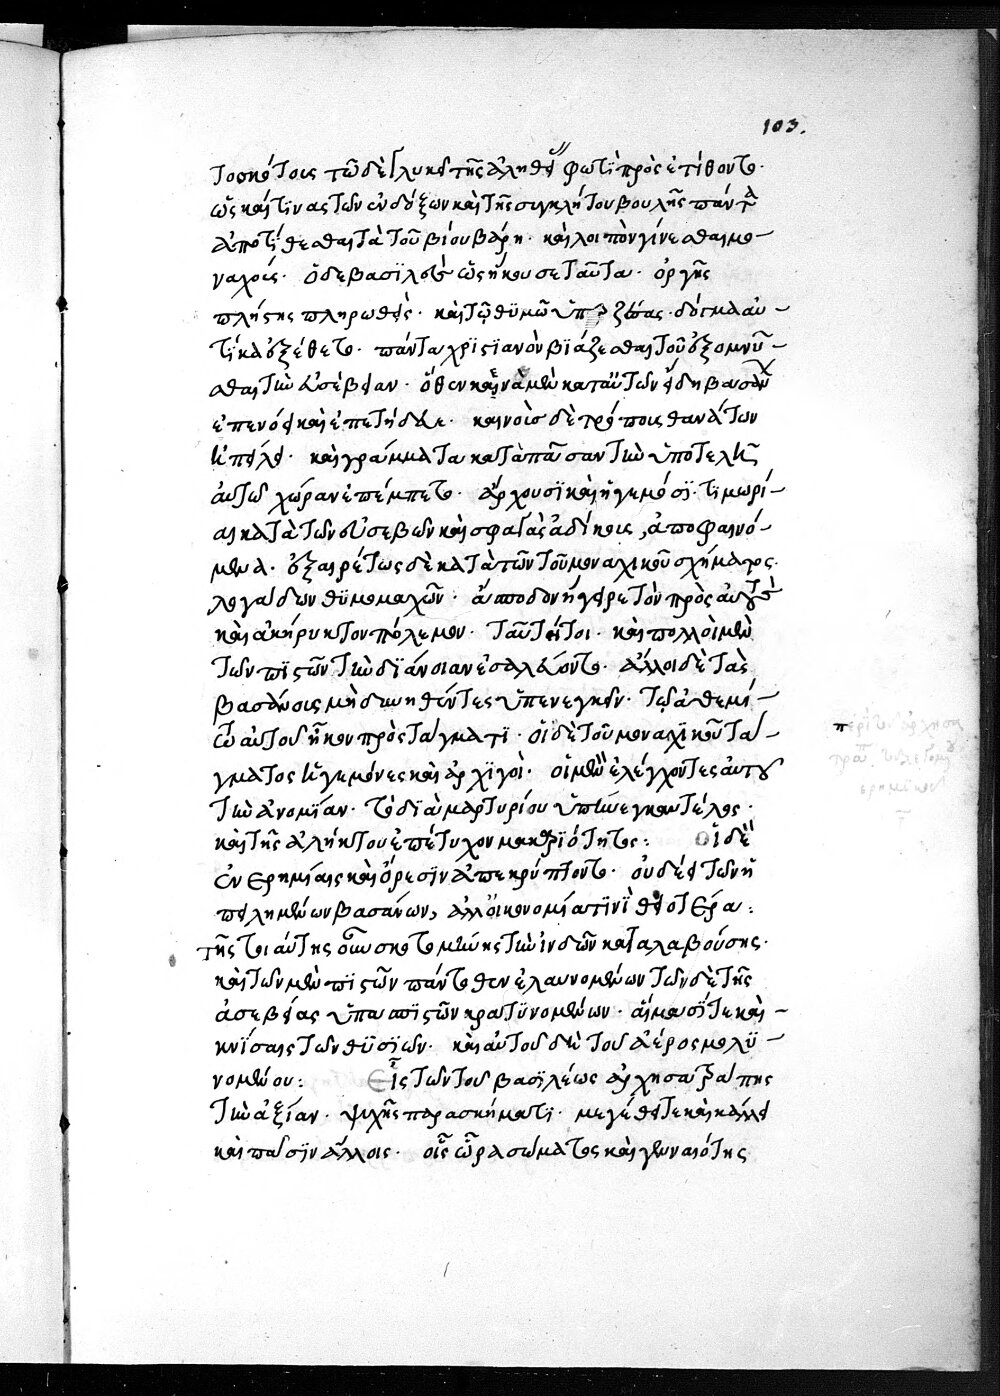 103.
το σκότοις τῶ δὲ γλυκεῖ τῆς ἀληθείας φωτὶ προσετίθοντο·
ὥς καί τινας τῶν ἐνδόξων καὶ τῆς συγκλήτου βουλῆς πάντα
ἀποτίθεσθαι τὰ τοῦ βίου βάρη· καὶ λοιπὸν γίνεσθαι μο-
ναχούς· ὁ δὲ βασϊλεὺς ὡς ἤκουσε ταῦτα· ὀργῆς
πλήστης πληρωθεὶς· καὶ τῷ θϋμῶ ὑπερζέσας· δόγμα αὐ-
τίκα ἐξέθετο· πάντα χρϊστϊανὸν βϊάζεσθαι τοῦ ἐξομνῦ-
σθαι τὴν εὐσέβειαν· ὅθεν καινὰ μὲν κατ' αὐτῶν εἴδη βασάνων
ἐπενόει καὶ ἐπετήδευε· καινοὺς δὲ τρόπους θανάτων
ἠπείλει· καὶ γράμματα κατὰ πᾶσαν τὴν ὑποτελῆ
αὐτῶ χώραν ἐπέμπετο· ἄρχουσϊ καὶ ἡγεμόσϊ· τϊμωρί-
αι κατὰ τῶν εὐσεβῶν καὶ σφαγὰς ἀδίκους, ἀποφαινό-
μενα· ἐξαιρέτως δὲ κατὰ τῶν τοῦ μοναχικοῦ σχήματος
λογάδων θϋμομαχῶν· ἄσπονδον ἤγειρε τὸν πρὸς αὐτοὺς
καὶ ἀκήρυκτον πόλεμον· ταῦτῃτοι· καὶ πολλοὶ μὲν
τῶν πϊστῶν τὴν δϊάνοιαν ἐσαλεύοντο· ἄλλοι δὲ τὰς
βασάνους μὴ δυνηθέντες ὑπενεγκεῖν· τῷ ἀθεμί-
τῳ αὐτοῦ εἶκον προστάγματϊ· οἱ δὲ τοῦ μοναχϊκοῦ τά-
γματος ἡγεμόνες καὶ ἀρχϊγοὶ· οἱ μὲν ἐλέγχοντες αὐτοῦ
τὴν ἀνομϊαν· τὸ διὰ μαρτυρίου ὑπήνεγκαν τέλος·
καὶ τῆς ἀλήκτου ἐπέτυχον μακαρϊότητος: Οἱ δὲ
ἐν ἐρημίαις καὶ ὄρεσϊν ἀπεκρύπτοντο· οὐ δέει τῶν ἠ-
πειλημένων βασάνων, ἀλλ' οἰκονομίᾳ τϊνϊ θειοτέρᾳ:
τῆς τοιαύτης οὖν σκοτομήνης τὴν ἰνδῶν καταλαβούσης·
καὶ τῶν μὲν πϊστῶν πάντοθεν ἐλαυνομένων τῶν δὲ τῆς
ἀσεβείας ὑπασπϊστῶν κρατϋνομένων· αἵμασϊ τε καὶ
κνίσαις τῶν θϋσϊῶν· καὶ αὐτοῦ δὴ τοῦ ἀέρος μολϋ-
νομένου: Εἷς τῶν τοῦ βασϊλέως ἀρχησατράπης
τὴν ἀξίαν· ψυχῆς παραστήματι· μεγέθει τε καὶ κάλλει
καὶ πᾶσϊν ἄλλοις· οἷς ὥρα σώματος καὶ γενναιότης